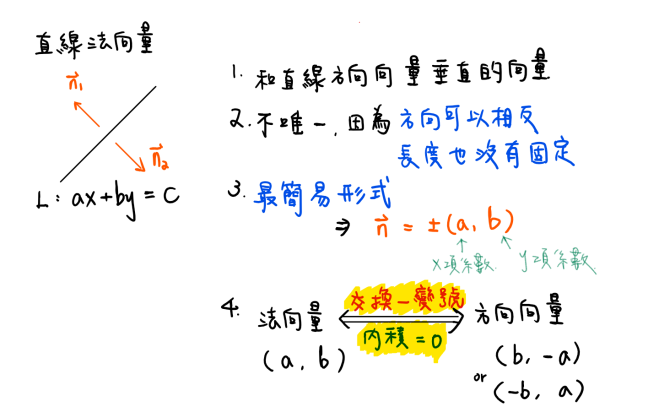 直線法向量
n⃗₁
n⃗₂
L: ax+by=C
1. 和直線方向向量垂直的向量
2. 不唯一,因為方向可以相反
長度也沒有固定
3. 最簡易形式
⇒ n⃗ = ±(a, b)
x項係數 y項係數
4. 法向量 交換一變號 方向向量
內積=0
(a, b) (b, -a)
or (-b, a)